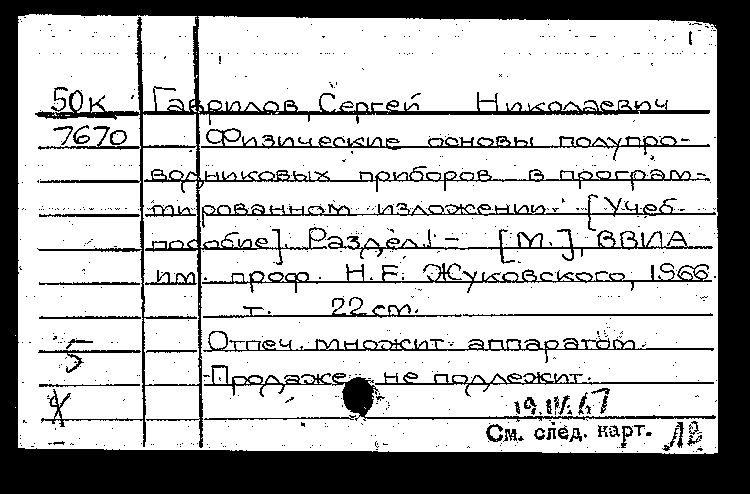 1
50к Гаврилов, Сергей Николаевич
7670 Физические основы полупро-
водниковых приборов в програм-
мированном изложении. [Учеб.
пособие]. Раздел 1 - [М.], ВВИА
им. проф. Н.Е. Жуковского, 1966.
т. 22 см.
Отпеч. множит. аппаратом.
5 Продаже не подлежит.
19.IV.67
См. след. карт. ЛВ